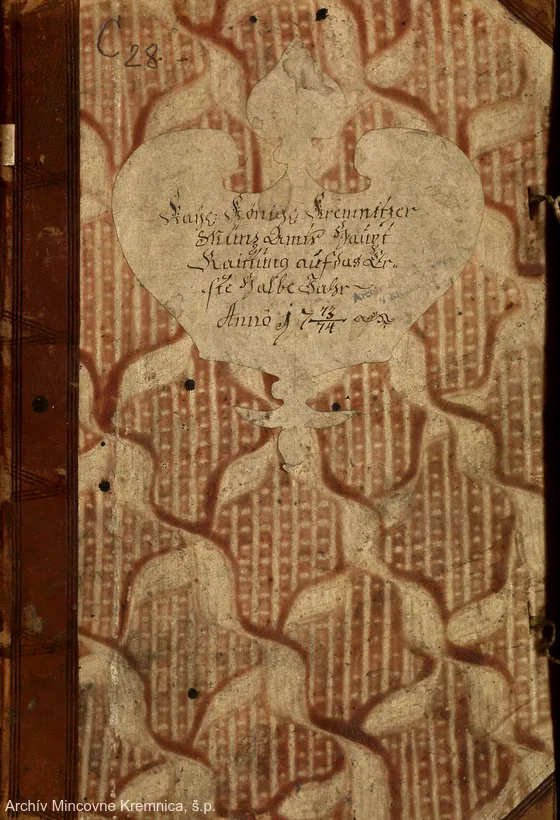 C 28.
Kays: Königs Kremnitzer
Münz Ambts Haupt
Raittung auf das Er-
ste Halbe Jahr
Anno 17 73/74
Archív Mincovne Kremnica, š.p.